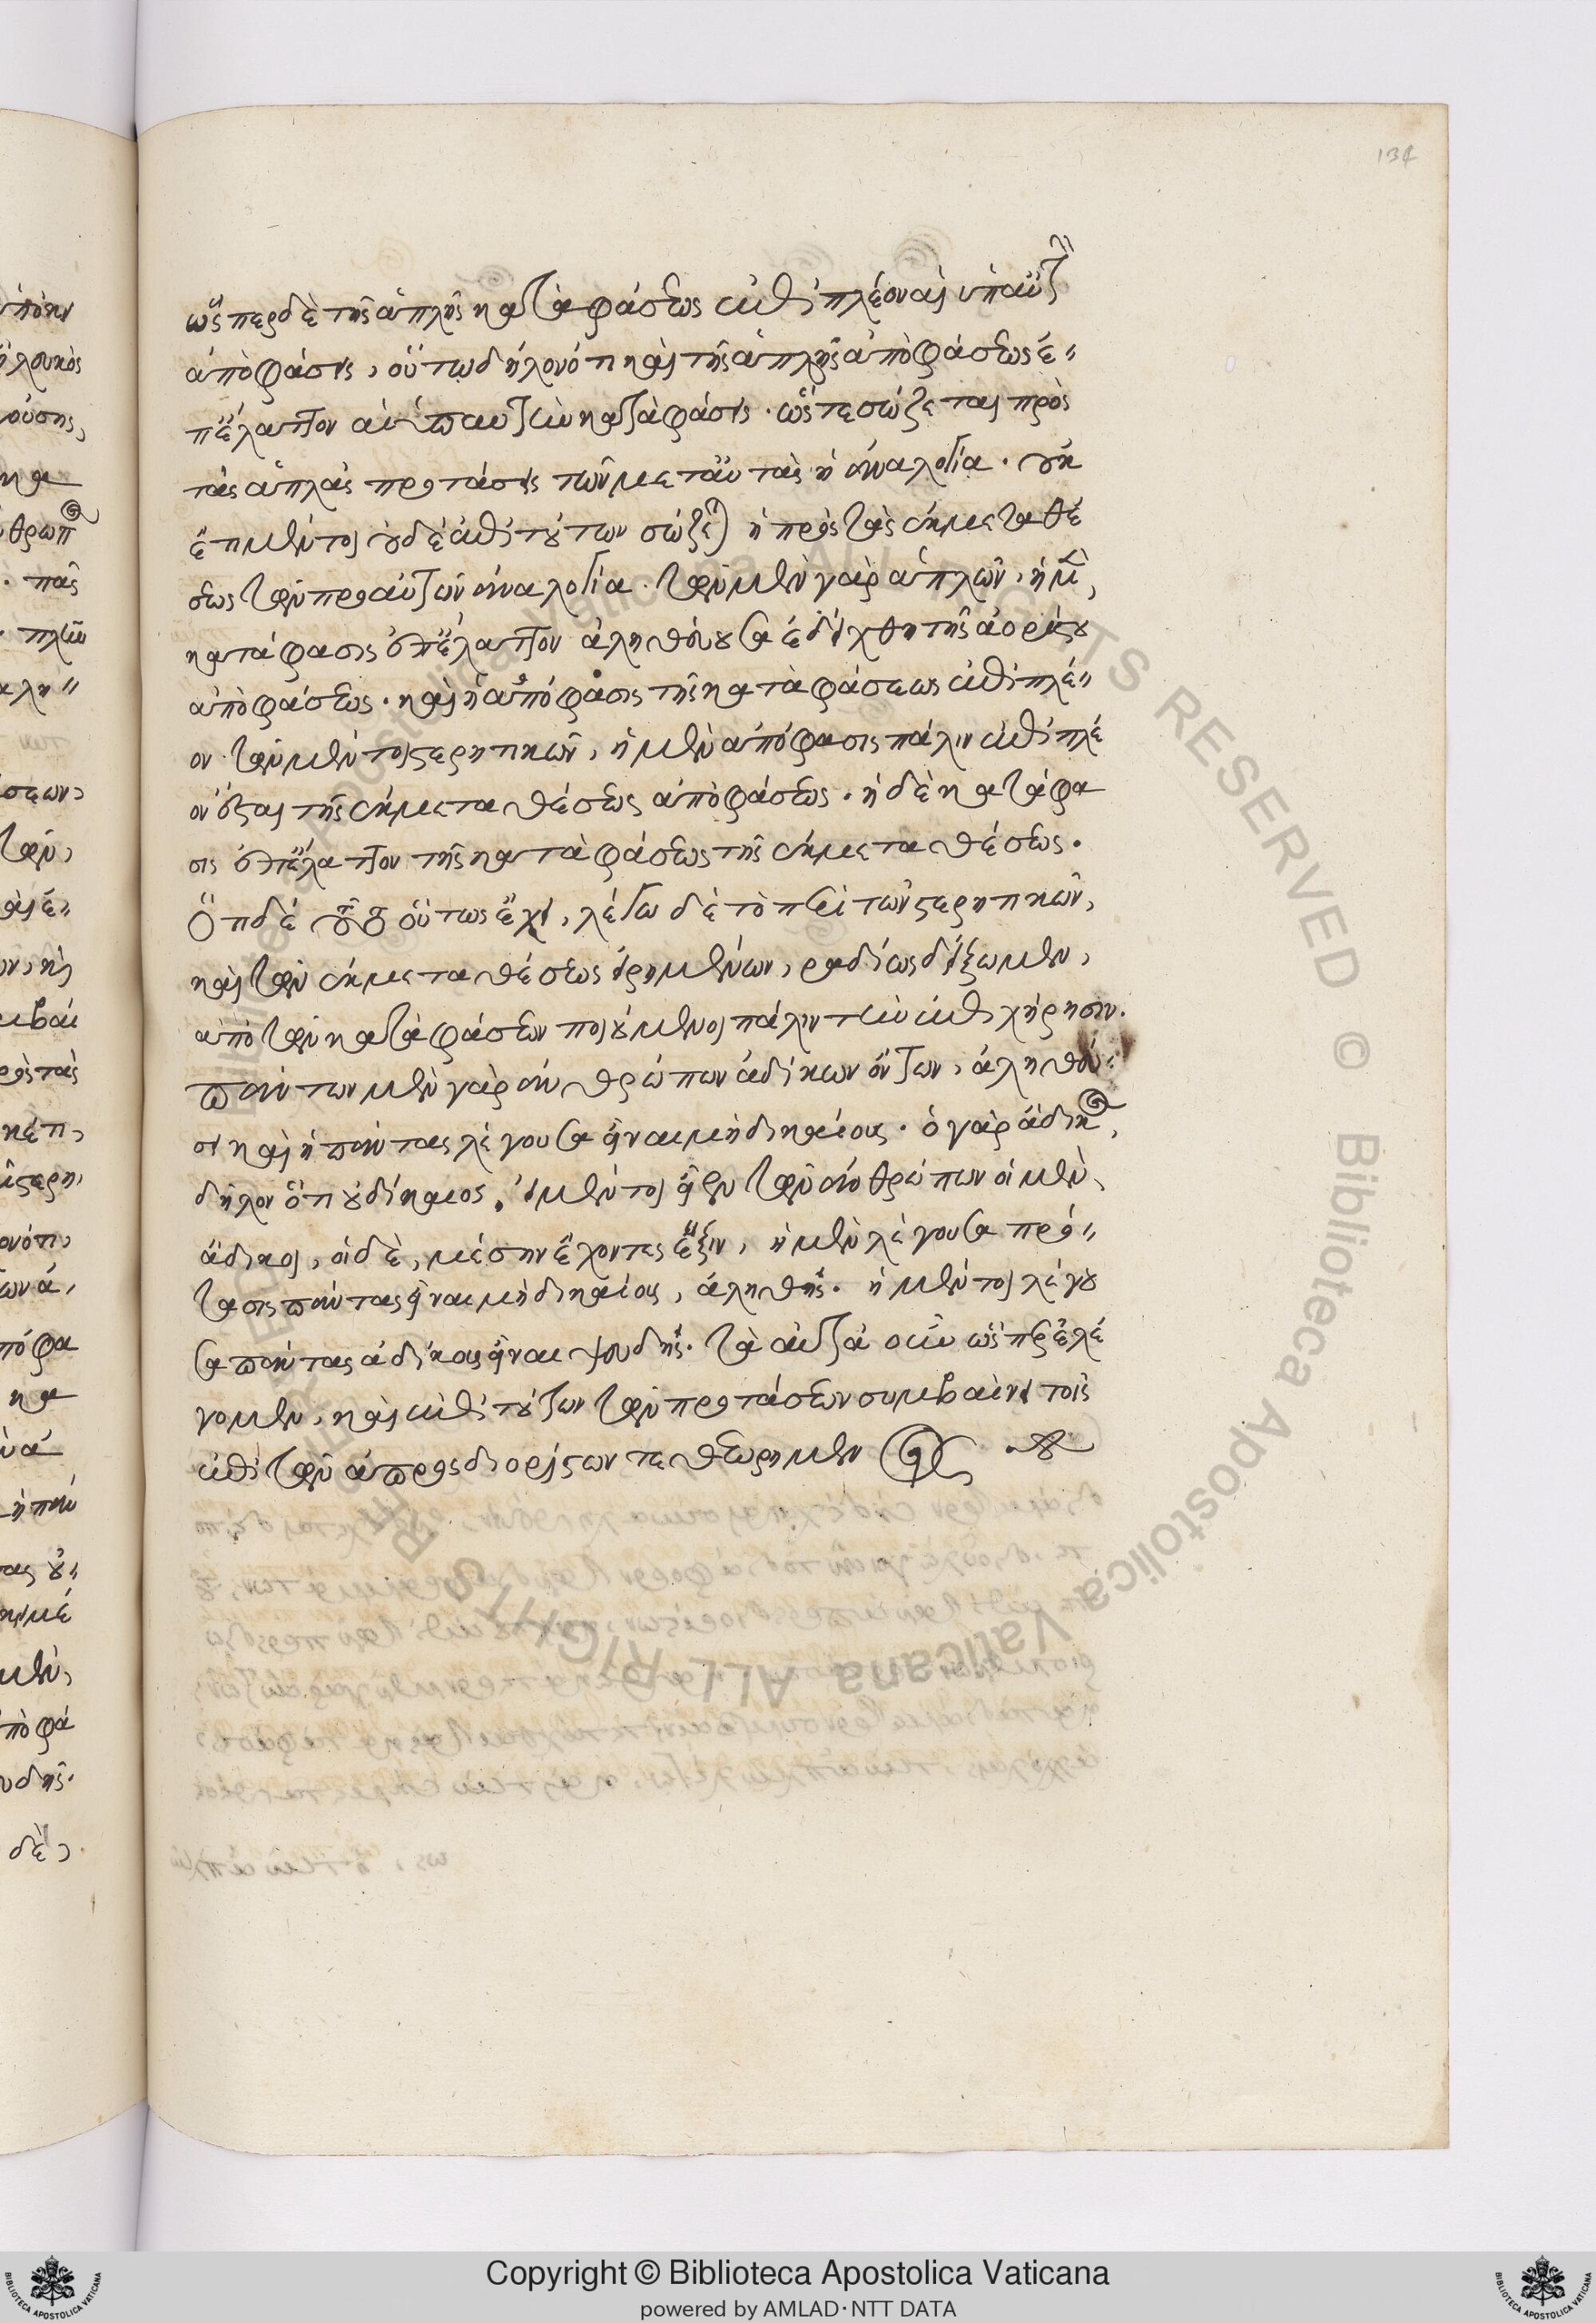 134
ὥσπερ δὲ τῆς ἁπλῆς καταφάσεως ἐπὶ πλέον αἱ ὑπ' αὐτὴν
ἀποφάσεις, οὕτω δηλονότι καὶ τῆς ἁπλῆς ἀποφάσεως ἐ-
π' ἔλαττον αἱ ὑπ' αὐτὴν καταφάσεις. ὥστε σώζεται πρὸς
τὰς ἁπλὰς προτάσεις τῶν μετ' αὐτὰς ἡ ἀναλογία. οὐκ
ἔτι μέντοι οὐδὲ ἐπὶ τούτων σώζεται ἡ πρὸς τὰς ἐκ μεταθέ
σεως τῶν πρὸ αὐτῶν ἀναλογία. τῶν μὲν γὰρ ἁπλῶν, ἡ μὲν,
κατάφασις ἐπ' ἔλαττον ἀληθεύουσα ἐδείχθη τῆς ἀορίστου
ἀποφάσεως. καὶ ἡ ἀπόφασις τῆς καταφάσεως ἐπὶ πλέ-
ον. τῶν μέντοι στερητικῶν, ἡ μὲν ἀπόφασις πάλιν ἐπὶ πλέ
ον ἔσται τῆς ἐκ μεταθέσεως ἀποφάσεως. ἡ δὲ κατάφα
σις ἐπ' ἔλαττον τῆς καταφάσεως τῆς ἐκ μεταθέσεως.
Ὅτι δὲ τοῦτο οὕτως ἔχει, λέγω δὲ τὸ περὶ τῶν στερητικῶν,
καὶ τῶν ἐκ μεταθέσεως εἰρημένων, ῥαδίως δείξωμεν,
ἀπὸ τῶν καταφάσεων ποιούμενοι πάλιν τὴν ἐπιχείρησιν.
πάντων μὲν γὰρ ἀνθρώπων ἀδίκων ὄντων, ἀληθεύ-
ει καὶ ἡ πάντας λέγουσα εἶναι μὴ δικαίους. ὁ γὰρ ἄδικος,
δῆλον ὅτι οὐ δίκαιος. εἰ μέντοι εἶεν τῶν ἀνθρώπων οἱ μὲν,
ἄδικοι, οἱ δὲ, μέσην ἔχοντες ἕξιν, ἡ μὲν λέγουσα πρό-
τασις πάντας εἶναι μὴ δικαίους, ἀληθής. ἡ μέντοι λέγου
σα πάντας ἀδίκους εἶναι ψευδής. τὰ αὐτὰ οὖν ὥσπερ ἐλέ
γομεν, καὶ ἐπὶ τούτων τῶν προτάσεων συμβαίνει τοῖς
ἐπὶ τῶν ἀπροσδιορίστων τεθεωρημένοις